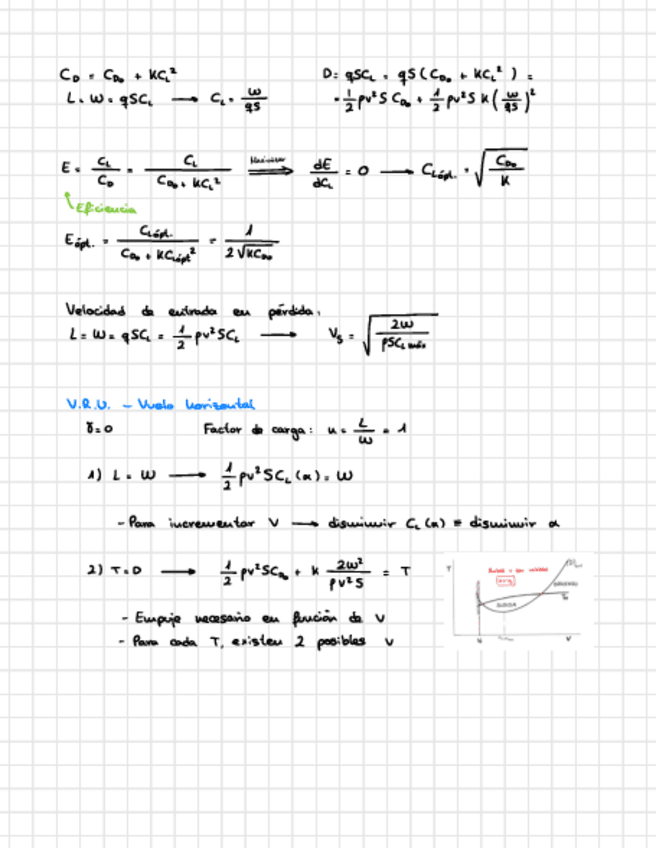 C_D = C_D₀ + KC_L²
D = qSC_L = qS (C_D₀ + KC_L²) =
L = W = qSC_L ⟶ C_L = W/qS
= 1/2 ρv²S C_D₀ + 1/2 ρv²S K (W/qS)²
E = C_L/C_D = C_L/(C_D₀ + KC_L²) ⟹ dE/dC_L = 0 ⟶ C_Lópt. = √(C_D₀/K)
Eficiencia
E_ópt. = C_Lópt./(C_D₀ + KC_Lópt²) = 1/(2√(KC_D₀))
Velocidad de entrada en pérdida:
L = W = qSC_L = 1/2 ρv²SC_L ⟶ V_S = √(2W/(ρSC_L máx))
V.R.U. - Vuelo horizontal
γ=0 Factor de carga: n = L/W = 1
1) L = W ⟶ 1/2 ρv²SC_L(α) = W
- Para incrementar V ⟶ disminuir C_L(α) ≡ disminuir α
2) T=D ⟶ 1/2 ρv²SC_D₀ + K 2W²/(ρv²S) = T
- Empuje necesario en función de V
- Para cada T, existen 2 posibles V
T
V